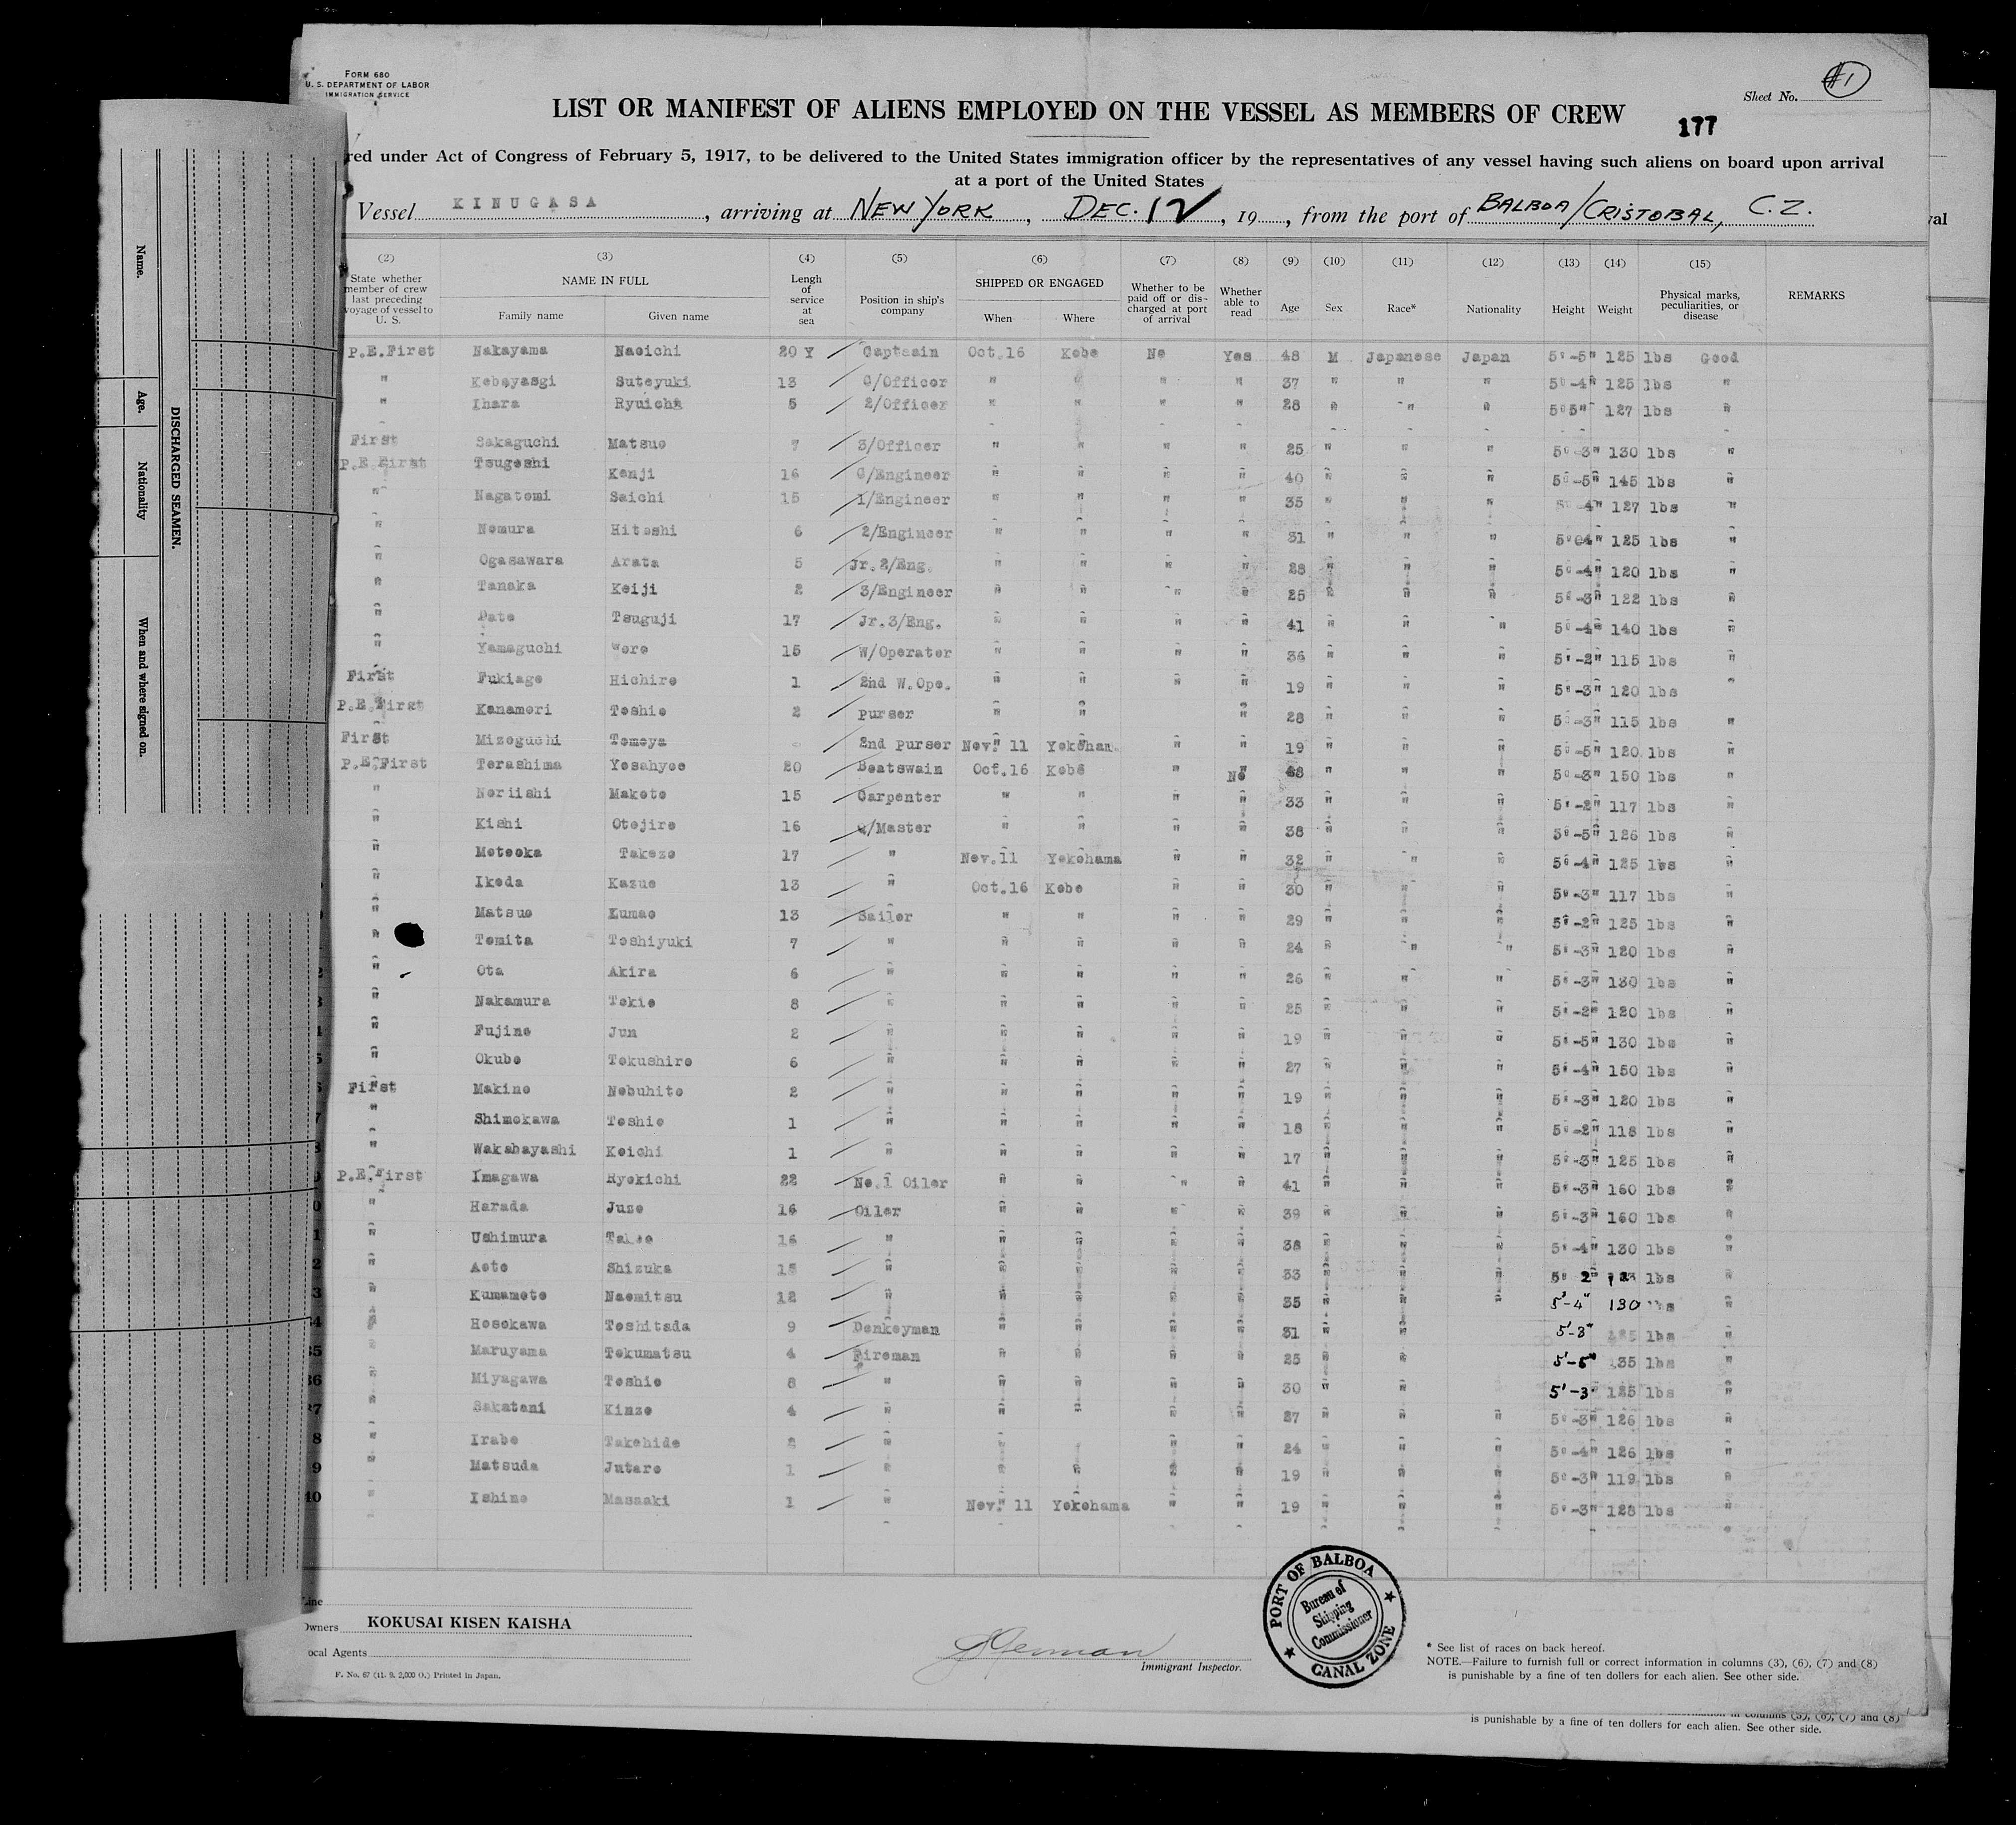 FORM 680
U. S. DEPARTMENT OF LABOR
IMMIGRATION SERVICE
Sheet No. #1
LIST OR MANIFEST OF ALIENS EMPLOYED ON THE VESSEL AS MEMBERS OF CREW
177
red under Act of Congress of February 5, 1917, to be delivered to the United States immigration officer by the representatives of any vessel having such aliens on board upon arrival
at a port of the United States
Vessel KINUGASA, arriving at NEW YORK, DEC. 12, 19, from the port of BALBOA/CRISTOBAL, C.Z.
(2) State whether member of crew last preceding voyage of vessel to U. S.
(3) NAME IN FULL Family name Given name
(4) Lengh of service at sea
(5) Position in ship's company
(6) SHIPPED OR ENGAGED When Where
(7) Whether to be paid off or discharged at port of arrival
(8) Whether able to read
(9) Age
(10) Sex
(11) Race*
(12) Nationality
(13) Height
(14) Weight
(15) Physical marks, peculiarities, or disease
REMARKS
P.E.First Nakayama Naoichi 20 Y Captsain Oct.16 Kobe No Yes 48 M Japanese Japan 5'-5" 125 lbs Good
" Kobayasgi Suteyuki 13 C/Officer " " " " 37 " " " 5'-4" 125 lbs "
" Ihara Ryuichi 5 2/Officer " " " " 28 " " " 5'5" 127 lbs "
First Sakaguchi Matsuo 7 3/Officer " " " " 25 " " " 5'-3" 130 lbs "
P.E.First Tsugoshi Kenji 16 C/Engineer " " " " 40 " " " 5'-5" 145 lbs "
" Nagatomi Saichi 15 1/Engineer " " " " 35 " " " 5'-4" 127 lbs "
" Nomura Hitoshi 6 2/Engineer " " " " 31 " " " 5'04" 125 lbs "
" Ogasawara Arata 5 Jr.2/Eng. " " " " 28 " " " 5'-4" 120 lbs "
" Tanaka Keiji 2 3/Engineer " " " " 25 " " " 5'-3" 122 lbs "
" Date Tsuguji 17 Jr.3/Eng. " " " " 41 " " " 5'-4" 140 lbs "
" Yamaguchi 15 W/Operator " " " " 36 " " " 5'-2" 115 lbs "
First Fukiage Hichiro 1 2nd W.Ope. " " " " 19 " " " 5'-3" 120 lbs "
P.E.First Kanamori Toshio 2 Purser " " " 28 " " " 5'-3" 115 lbs "
First Mizoguchi Tomoya 2nd Purser Nov. 11 Yokoham " " 19 " " " 5'-5" 120 lbs "
P.E.First Terashima Yosahyoe 20 Boatswain Oct.16 Kobe " No 48 " " " 5'-3" 150 lbs "
" Noriishi Makoto 15 Carpenter " " " " 33 " " " 5'-2" 117 lbs "
" Kishi Otojiro 16 Q/Master " " " " 38 " " " 5'-5" 126 lbs "
" Motooka Takezo 17 " Nov.11 Yokohama " " 32 " " " 5'-4" 125 lbs "
" Ikeda Kazuo 13 " Oct.16 Kobe " " 30 " " " 5'-3" 117 lbs "
" Matsuo Kumao 13 Sailor " " " " 29 " " " 5'-2" 125 lbs "
" Tomita Toshiyuki 7 " " " " " 24 " " " 5'-3" 120 lbs "
" Ota Akira 6 " " " " " 26 " " " 5'-3" 130 lbs "
" Nakamura Tokio 8 " " " " " 25 " " " 5'-2" 120 lbs "
" Fujino Jun 2 " " " " " 19 " " " 5'-5" 130 lbs "
" Okubo Tokushiro 6 " " " " " 27 " " " 5'-4" 150 lbs "
First Makino Nobuhito 2 " " " " " 19 " " " 5'-3" 120 lbs "
" Shimokawa Toshio 1 " " " " " 18 " " " 5'-2" 118 lbs "
" Wakabayashi Koichi 1 " " " " " 17 " " " 5'-3" 125 lbs "
P.E.First Imagawa Ryokichi 22 No.1 Oiler " " " " 41 " " " 5'-3" 160 lbs "
" Harada Juzo 16 Oiler " " " " 39 " " " 5'-3" 160 lbs "
" Ushimura Takeo 16 " " " " " 38 " " " 5'-4" 130 lbs "
" Aoto Shizuka 15 " " " " " 33 " " " 5' 2" lbs "
" Kumamoto Naomitsu 12 " " " " " 35 " " " 5'-4" 130 lbs "
" Hosokawa Toshitada 9 Donkeyman " " " " 31 " " 5'-3" lbs "
" Maruyama Tokumatsu 4 Fireman " " " " 25 " " 5'-5" 135 lbs "
" Miyagawa Toshio 8 " " " " " 30 " " 5'-3" 125 lbs "
" Sakatani Kinzo 4 " " " " " 27 " " " 5'-3" 126 lbs "
" Irabe Takehide 2 " " " " " 24 " " " 5'-4" 126 lbs "
" Matsuda Jutaro 1 " " " " " 19 " " " 5'-3" 119 lbs "
" Ishino Masaaki 1 " Nov. 11 Yokohama " " 19 " " " 5'-3" 128 lbs "
Line
Owners KOKUSAI KISEN KAISHA
ocal Agents
F. No. 67 (11. 9. 2,000 O.) Printed in Japan.
Immigrant Inspector.
PORT OF BALBOA
Bureau of
Shipping
Commissioner
CANAL ZONE
* See list of races on back hereof.
NOTE.—Failure to furnish full or correct information in columns (3), (6), (7) and (8)
is punishable by a fine of ten dollars for each alien. See other side.
columns (3), (6), (7) and (8)
is punishable by a fine of ten dollars for each alien. See other side.
val
DISCHARGED SEAMEN.
Name.
Age.
Nationality
When and where signed on.